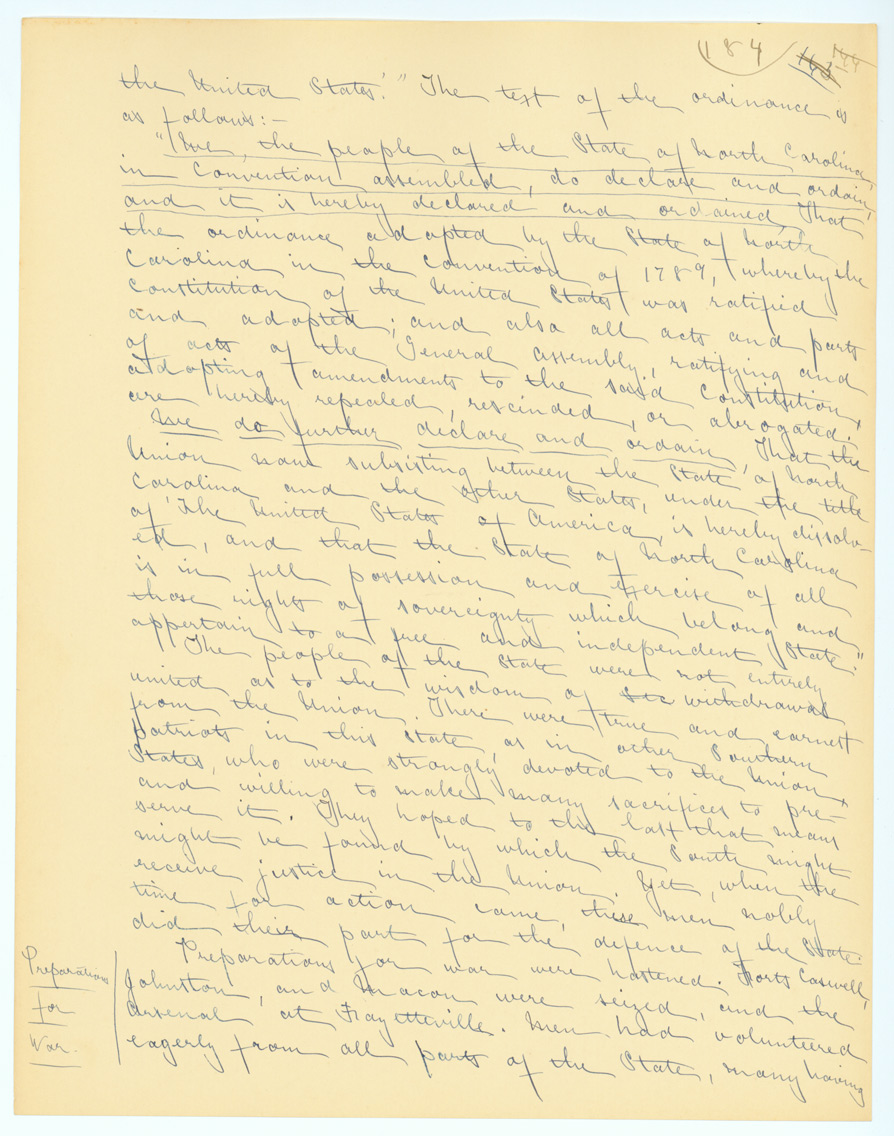 184
the United States'." The text of the ordinance is
as follows:-
"We, the people of the State of North Carolina,
in Convention assembled, do declare and ordain,
and it is hereby declared and ordained, That
the ordinance adopted by the State of North
Carolina in the Convention of 1789, whereby the
Constitution of the United States was ratified
and adopted; and also all acts and parts
of acts of the General Assembly, ratifying and
adopting amendments to the said Constitution,
are hereby repealed, rescinded, or abrogated.
We do further declare and ordain, That the
Union now subsisting between the State of North
Carolina and the other States, under the title
of 'The United States of America, is hereby dissolv-
ed, and that the State of North Carolina
is in full possession and exercise of all
those rights of sovereignty which belong and
appertain to a free and independent State."
The people of the State were not entirely
united as to the wisdom of withdrawal
from the Union. There were true and earnest
patriots in this State, as in other Southern
States, who were strongly devoted to the Union,
and willing to make many sacrifices to pre-
serve it. They hoped to the last that means
might be found by which the South might
receive justice in the Union. Yet, when the
time for action came, these men nobly
did their part for the defence of the State.
Preparations for war were hastened. Forts Caswell,
Johnston, and Macon were seized, and the
Arsenal at Fayetteville. Men had volunteered
eagerly from all parts of the State, many having
Preparations
for
War.